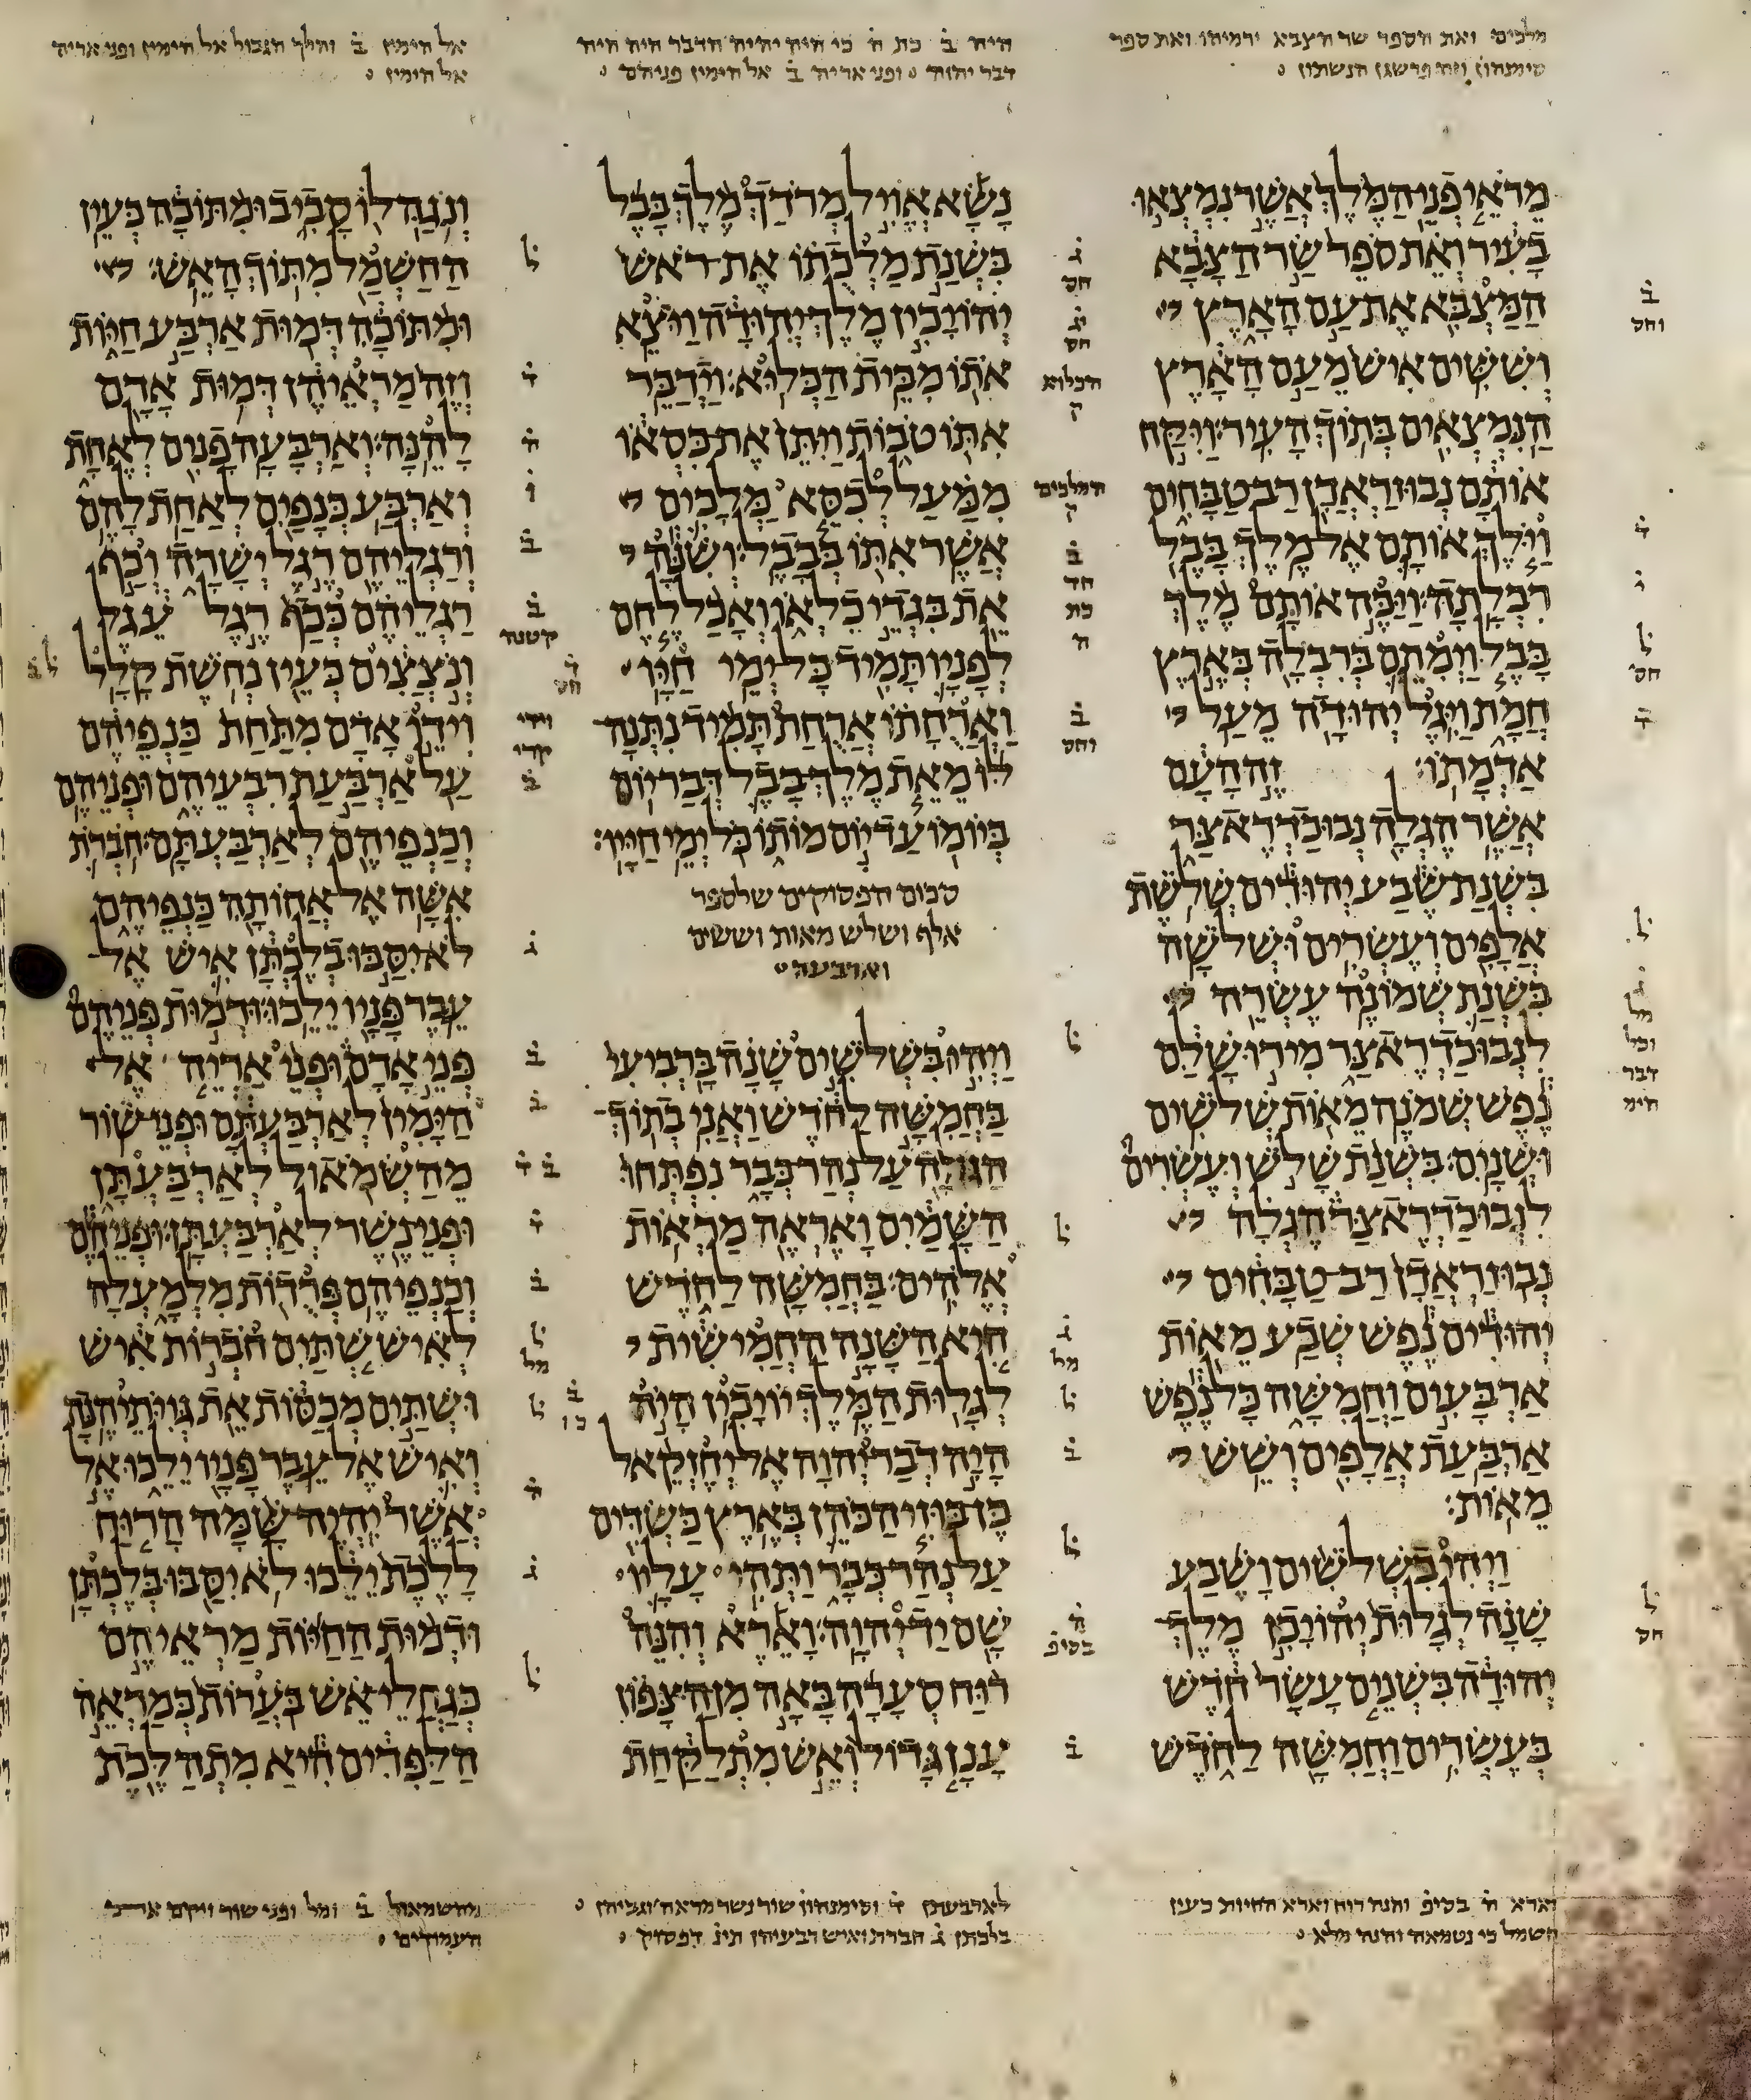 מלכים ואת הספר שר הצבא ירמיהו ואת ספר
סימנהון וזה פרשגן הנשתון
היה ב כת ה כי היה יהיה הדבר היה היה
דבר יהוה ופני אריה ב אל הימין פניהם
אל הימין ב והלך הגבול אל הימין ופני אריה
אל הימין
מראי פני המלך אשר נמצאו
בעיר ואת ספר שר הצבא
המצבא את עם הארץ
וששים איש מעם הארץ
הנמצאים בתוך העיר׃ ויקח
אותם נבוזראדן רב טבחים
וילך אותם אל מלך בבל
רבלתה׃ ויכה אותם מלך
בבל וימתם ברבלה בארץ
חמת ויגל יהודה מעל
אדמתו׃ זה העם
אשר הגלה נבוכדראצר
בשנת שבע יהודים שלשת
אלפים ועשרים ושלשה
בשנת שמונה עשרה
לנבוכדראצר מירושלם
נפש שמנה מאות שלשים
ושנים׃ בשנת שלש ועשרים
לנבוכדראצר הגלה
נבוזראדן רב טבחים
יהודים נפש שבע מאות
ארבעים וחמשה כל נפש
ארבעת אלפים ושש
מאות׃
ויהי בשלשים ושבע
שנה לגלות יהויכן מלך
יהודה בשנים עשר חדש
בעשרים וחמשה לחדש
נשא אויל מרדך מלך בבל
בשנת מלכתו את ראש
יהויכין מלך יהודה ויצא
אתו מבית הכלוא׃ וידבר
אתו טבות ויתן את כסאו
ממעל לכסא מלכים
אשר אתו בבבל׃ ושנה
את בגדי כלאו ואכל לחם
לפניו תמיד כל ימי חיו
וארחתו ארחת תמיד נתנה
לו מאת מלך בבל דבר יום
ביומו עד יום מותו כל ימי חייו׃
סכום הפסוקים שלספר
אלף ושלש מאות וששים
וארבעה
ויהי בשלשים שנה ברביעי
בחמשה לחדש ואני בתוך
הגולה על נהר כבר נפתחו
השמים ואראה מראות
אלהים׃ בחמשה לחדש
היא השנה החמישית
לגלות המלך יויכין׃ היה
היה דבר יהוה אל יחזקאל
בן בוזי הכהן בארץ כשדים
על נהר כבר ותהי עליו
שם יד יהוה׃ וארא והנה
רוח סערה באה מן הצפון
ענן גדול ואש מתלקחת
ונגה לו סביב ומתוכה כעין
החשמל מתוך האש׃
ומתוכה דמות ארבע חיות
וזה מראיהן דמות אדם
להנה׃ וארבעה פנים לאחת
וארבע כנפים לאחת להם
ורגליהם רגל ישרה וכף
רגליהם ככף רגל עגל
ונצצים כעין נחשת קלל
וידו אדם מתחת כנפיהם
על ארבעת רבעיהם ופניהם
וכנפיהם לארבעתם׃ חברת
אשה אל אחותה כנפיהם
לא יסבו בלכתן איש אל
עבר פניו ילכו׃ ודמות פניהם
פני אדם ופני אריה אל
הימין לארבעתם ופני שור
מהשמאול לארבעתן
ופני נשר לארבעתן׃ ופניהם
וכנפיהם פרדות מלמעלה
לאיש שתים חברות איש
ושתים מכסות את גויתיהנה
ואיש אל עבר פניו ילכו אל
אשר יהיה שמה הרוח
ללכת ילכו לא יסבו בלכתן
ודמות החיות מראיהם
כגחלי אש בערות כמראה
הלפדים היא מתהלכת
וארא ה בסיפ והנה רוח וארא החיות כעין
חשמל כי נטמאה והנה מלא
לארבעתן ד וסימנהון שור נשר מראה וגביהן
בלכתן ג חברת ואיש רבעיהן תינ דפסוק
מהשמאול ב ומל ופני שור ויקם את
העמודים